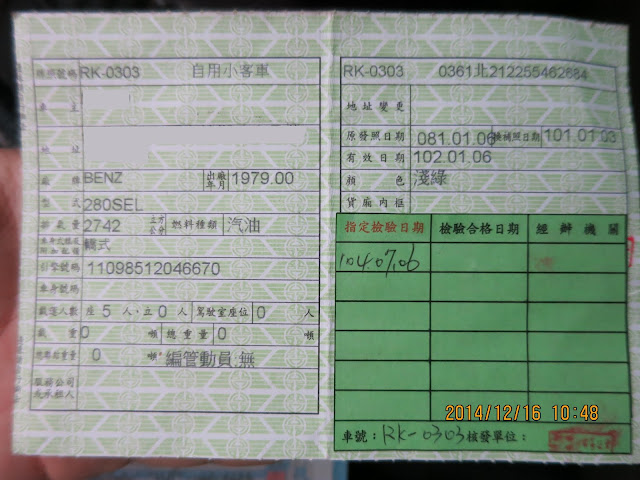 牌照號碼 RK-0303 自用小客車
車主
地址
廠牌 BENZ 出廠年月 1979.00
型式 280SEL
排氣量 2742 立方公分 燃料種類 汽油
轎式
引擎號碼 11098512046670
車身號碼
載運人數 座 5 人·立 0 人 駕駛室座位 0 人
載重 0 噸 總重量 0 噸
0 噸 編管動員:無
RK-0303 0361北212255462884
地址變更
原發照日期 081.01.06 換補照日期 101.01.03
有效日期 102.01.06
顏色 淺綠
貨廂內框
指定檢驗日期 檢驗合格日期 經辦機關
104.07.06
2014/12/16 10:48
車號：RK-0303 核發單位：